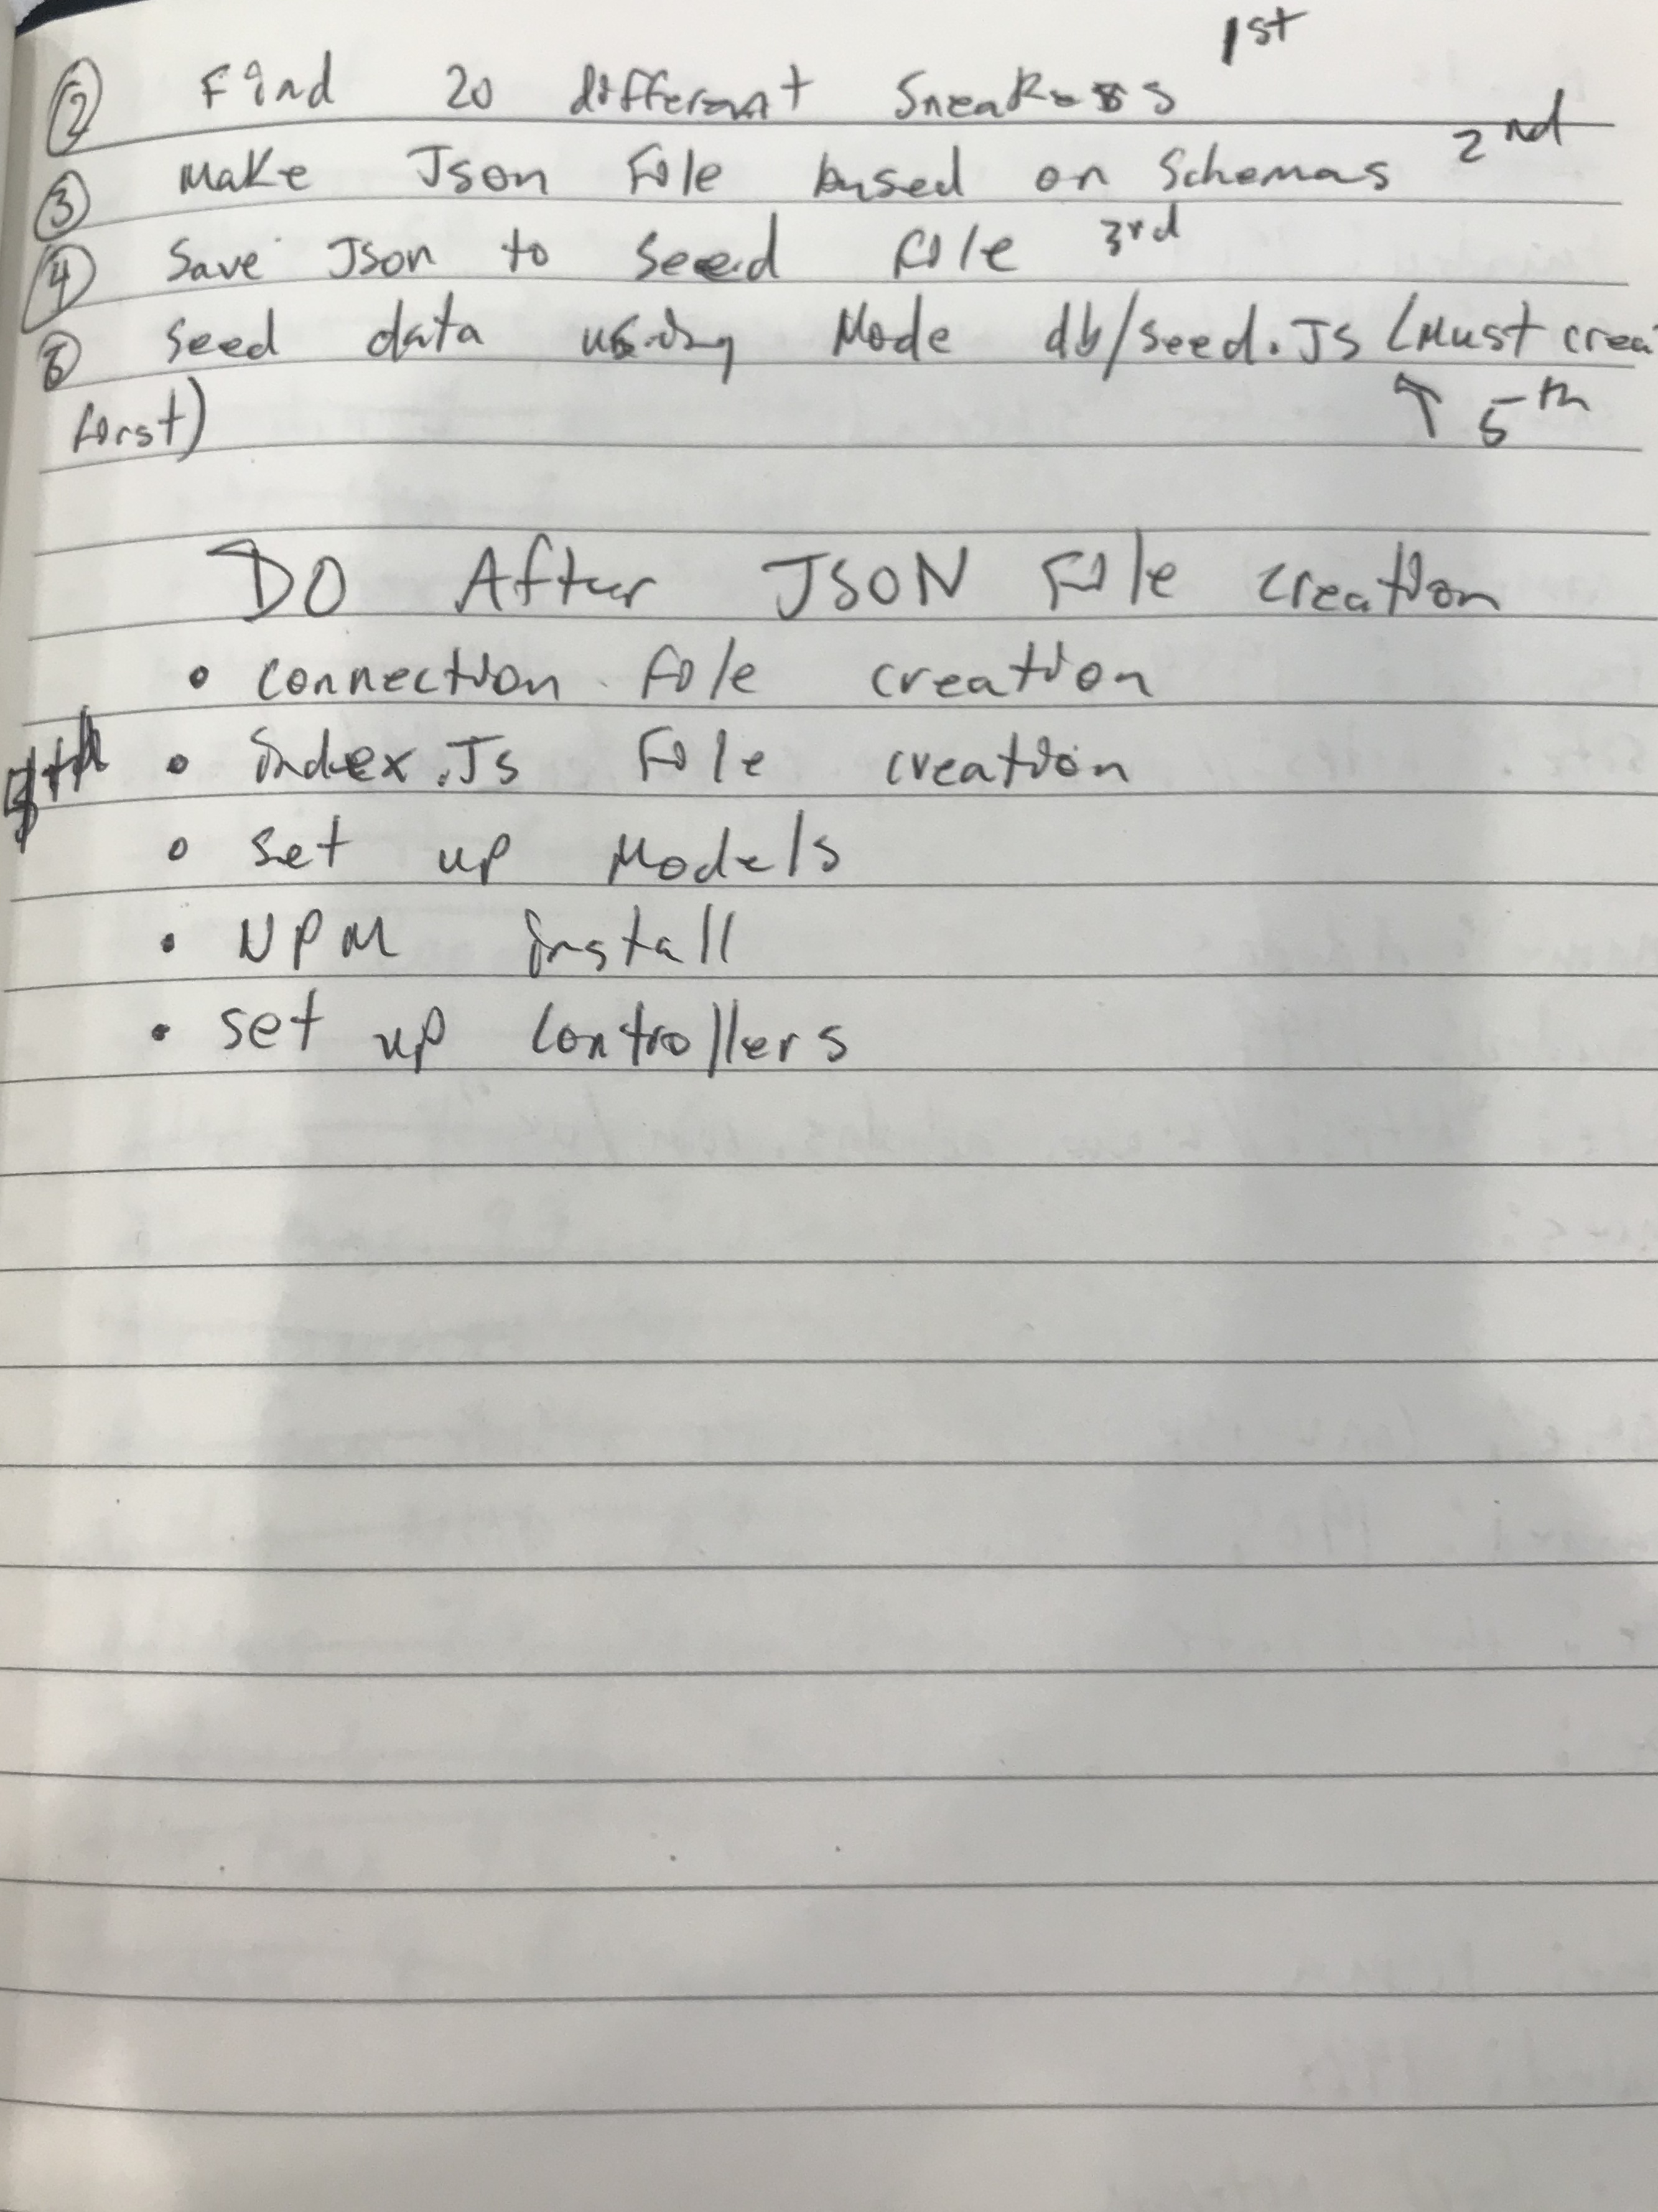 ② Find 20 different Sneakers 1st
③ Make Json File based on Schemas 2nd
④ Save Json to seed file 3rd
seed data using Node db/seed.Js (Must crea
first) ↑ 5th
DO After JSON File creation
• connection file creation
• index.Js File creation
• set up Models
• NPM install
• set up controllers